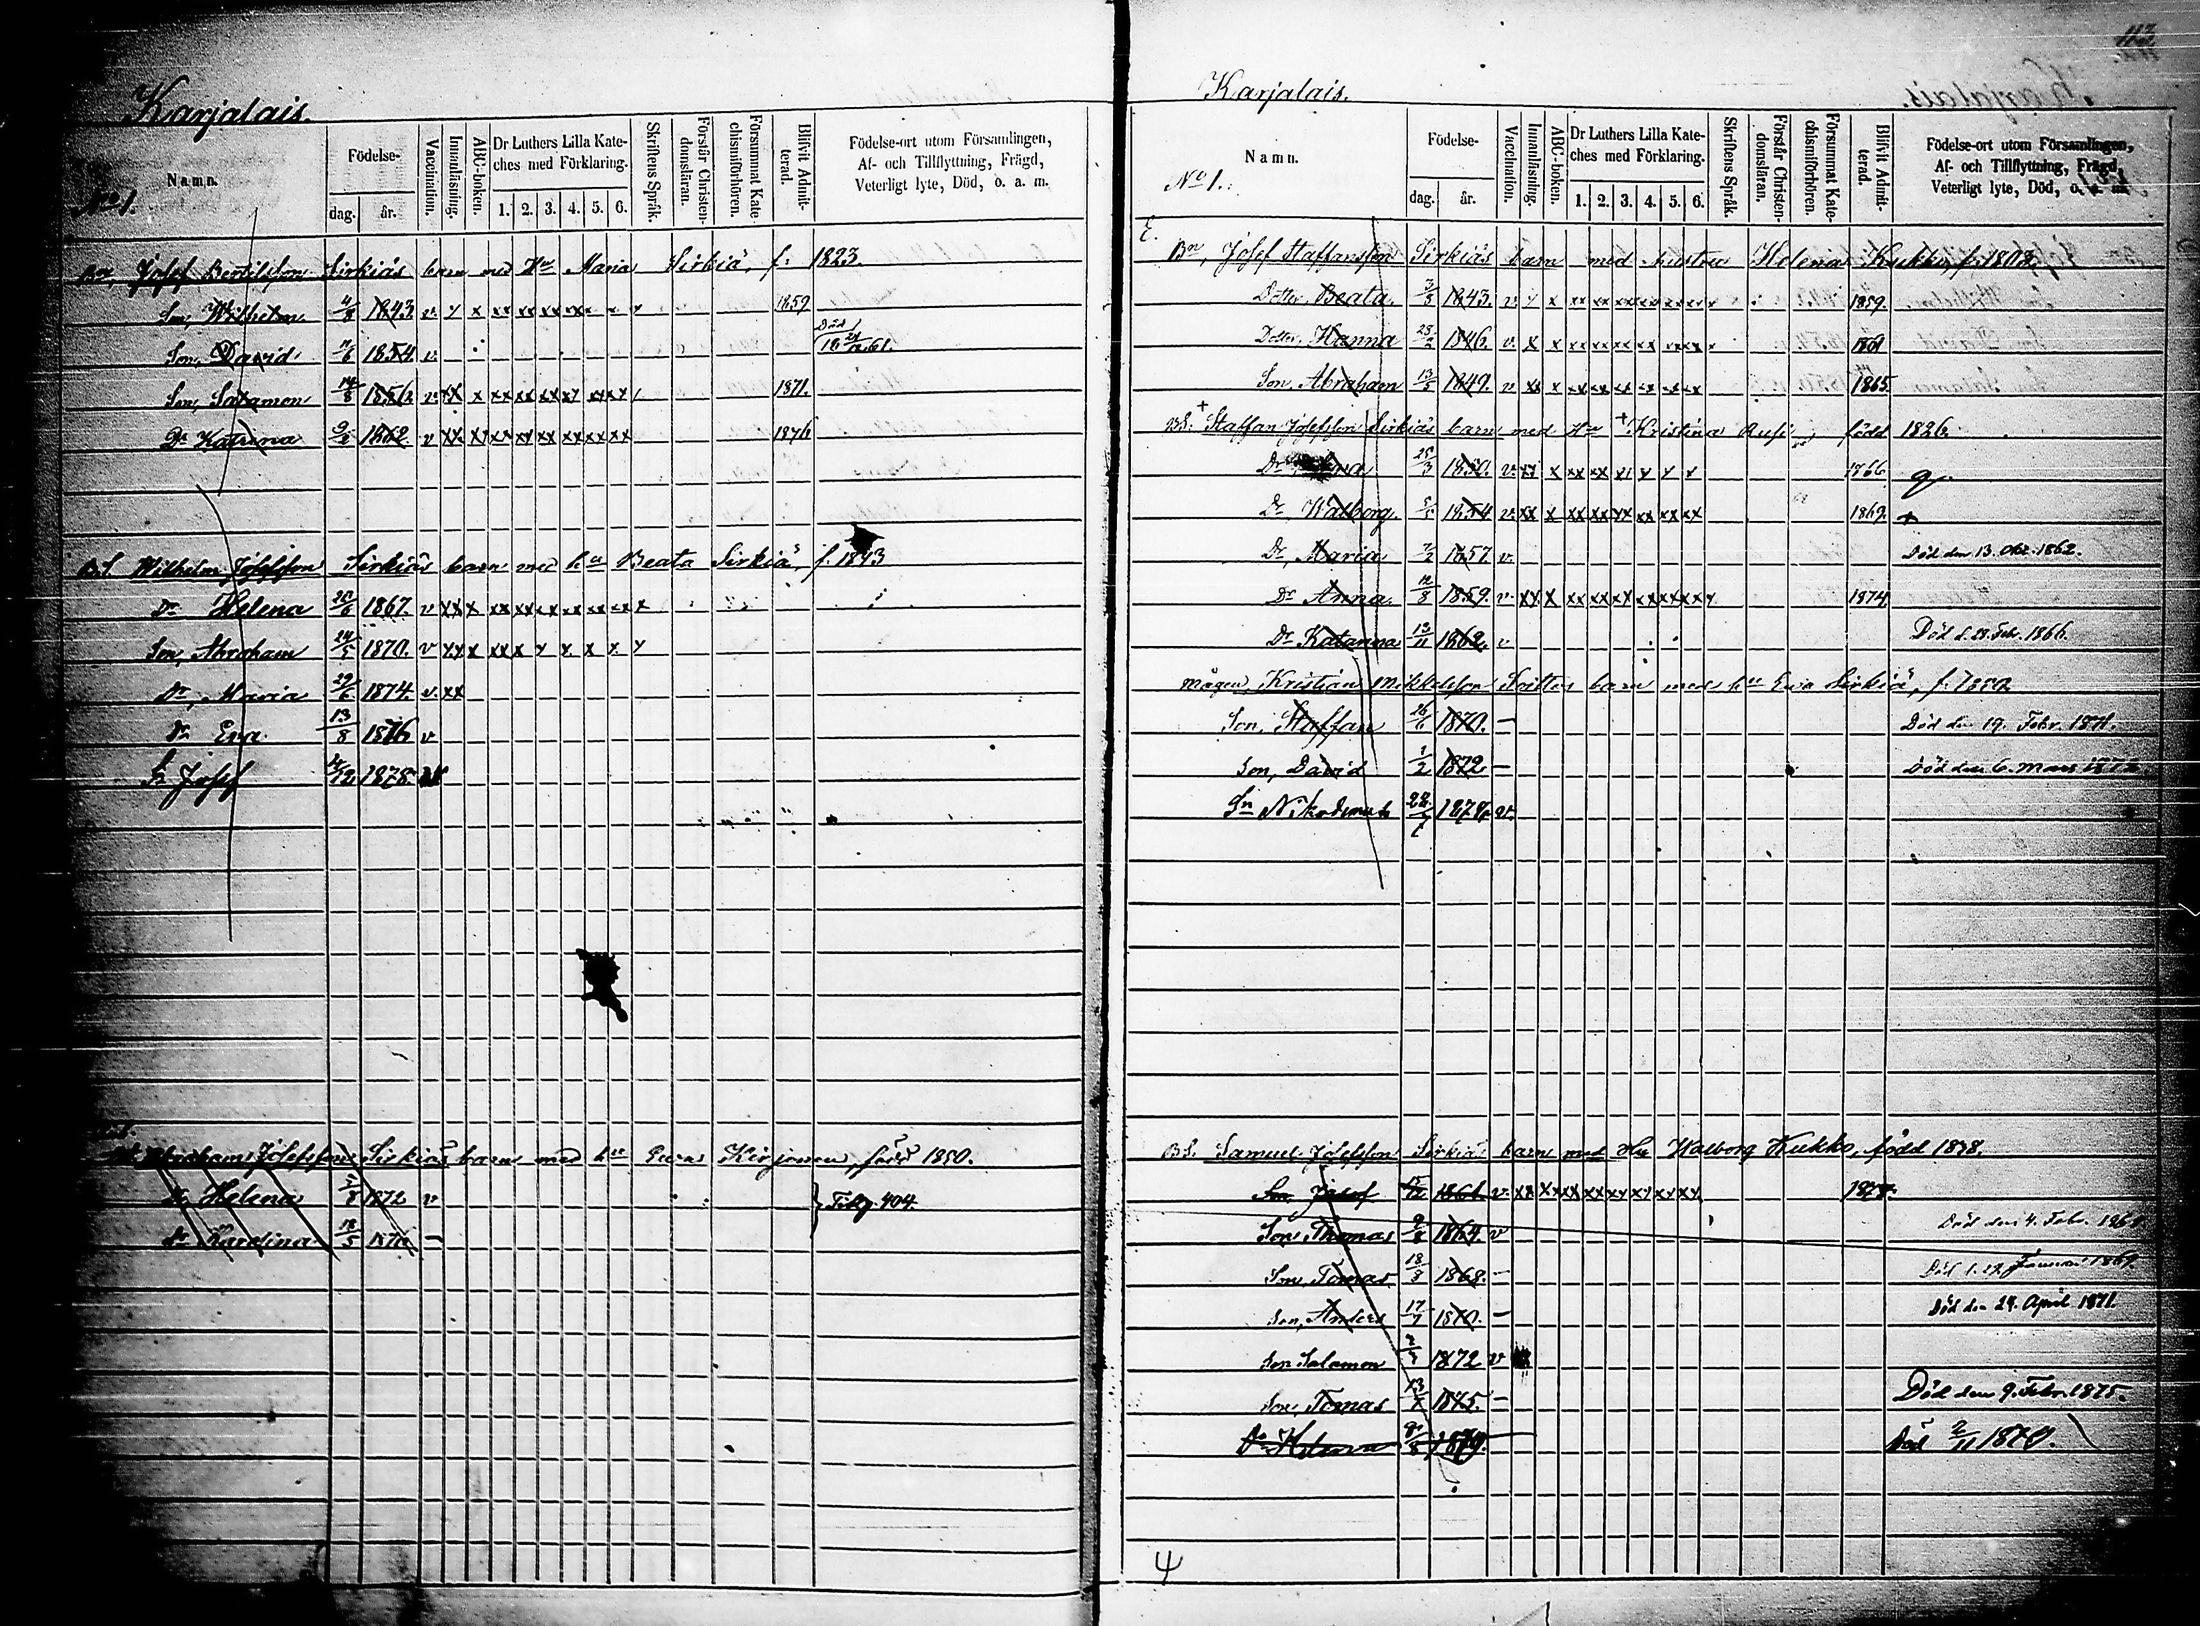 Karjalais.
No 1.
Namn.
Födelse-
dag. år.
Vaccination.
Innanläsning.
ABC-boken.
Dr Luthers Lilla Kate-
ches med Förklaring.
1. 2. 3. 4. 5. 6.
Skriftens Språk.
Förstår Christen-
domsläran.
Försummat Kate-
chismiförhören.
Blifvit Admit-
terad.
Födelse-ort utom Församlingen,
Af- och Tillflyttning, Frägd,
Veterligt lyte, Död, o. a. m.
Bn, Josef Bertilsson Sirkiäs barn med Hu Maria Sirkiä, f. 1823.
Son, Wilhelm 4/8 1843 v. y x xx xx xx xx 1859
Son, David 11/6 1854 v. Död
Son, Salamon 14/8 1856 v. xx x xx xx xx xx xx 1871.
Dr Katrina 9/2 1862 v xx xx xx xx xx xx xx 1876
BS. Wilhelm Josefsson Sirkiäs barn med hu Beata Sirkiä, f. 1843
Dr Helena 25/6 1867 v xx x xx xx xx xx xx xx x
Son, Abraham 24/5 1870. v xx x xx x x x x x
Dr, Maria 29/6 1874. v. xx
Dr Eva 13/8 1876 v
Sn Josef 1878
Abraham Josefsson Sirkiäs barn med hu Kirjonen, född 1850.
Dr Helena 5/8 1872 v Fol. 404.
Dr Karolina 18/5 1876 –
113
Karjalais.
No 1.
Namn.
Födelse-
dag. år.
Vaccination.
Innanläsning.
ABC-boken.
Dr Luthers Lilla Kate-
ches med Förklaring.
1. 2. 3. 4. 5. 6.
Skriftens Språk.
Förstår Christen-
domsläran.
Försummat Kate-
chismiförhören.
Blifvit Admit-
terad.
Födelse-ort utom Församlingen,
Af- och Tillflyttning, Frägd,
Veterligt lyte, Död, o. a. m.
Bn, Josef Staffansson Sirkiäs barn med hustru Helena Kukko, f. 1808
Dotter Beata 3/8 1843. v. y x xx xx xx xx xx 1859.
Dotter Hanna 25/2 1846. v. x x xx xx xx xx xx 1861
Son, Abraham 13/5 1849. v xx x xx xx xx 1865
BS. Staffan Josefsson Sirkiäs barn med Hu Kristina född 1826.
Dr 25/3 1850. v. xx x xx xx x x x x 1866
Dr, Walborg. 5/5 1854 v. xx x xx xx xx xx xx xx 1869.
Dr, Maria 7/2 1857. v. Död den 13. Okt. 1862.
Dr Anna 12/8 1859. v xx x xx xx x x xx xx xx 1874
Dr Katarina 13/11 1862. v Död d. 28. Feb. 1866.
Mågen, Kristian Mikkelsson barn med hu Eva Sirkiä, f. 1850
Son, Staffan 26/6 1870. – Död den 19. Febr. 1871.
Son, David 1/2 1872 – Död den 6. Mars 1872.
Sn Nikodemus v.
BS. Samuel Josefsson Sirkiäs barn med Hu Walborg Kukko, född 1838.
Son, Josef 1861 v. xx xx xx xx xx xx xx 1878.
Son Thomas 9/8 1864. v Död den 4. Febr.
Son, Tomas 18/8 1868. – Död d. 27. Januari 1869.
Son, Anders 17/7 1870. – Död den 24. April 1871.
Son Salamon 1872 v
Son, Tomas – Död den 9. Febr. 1875.
Dr Helena 1879. Död 2/11
4